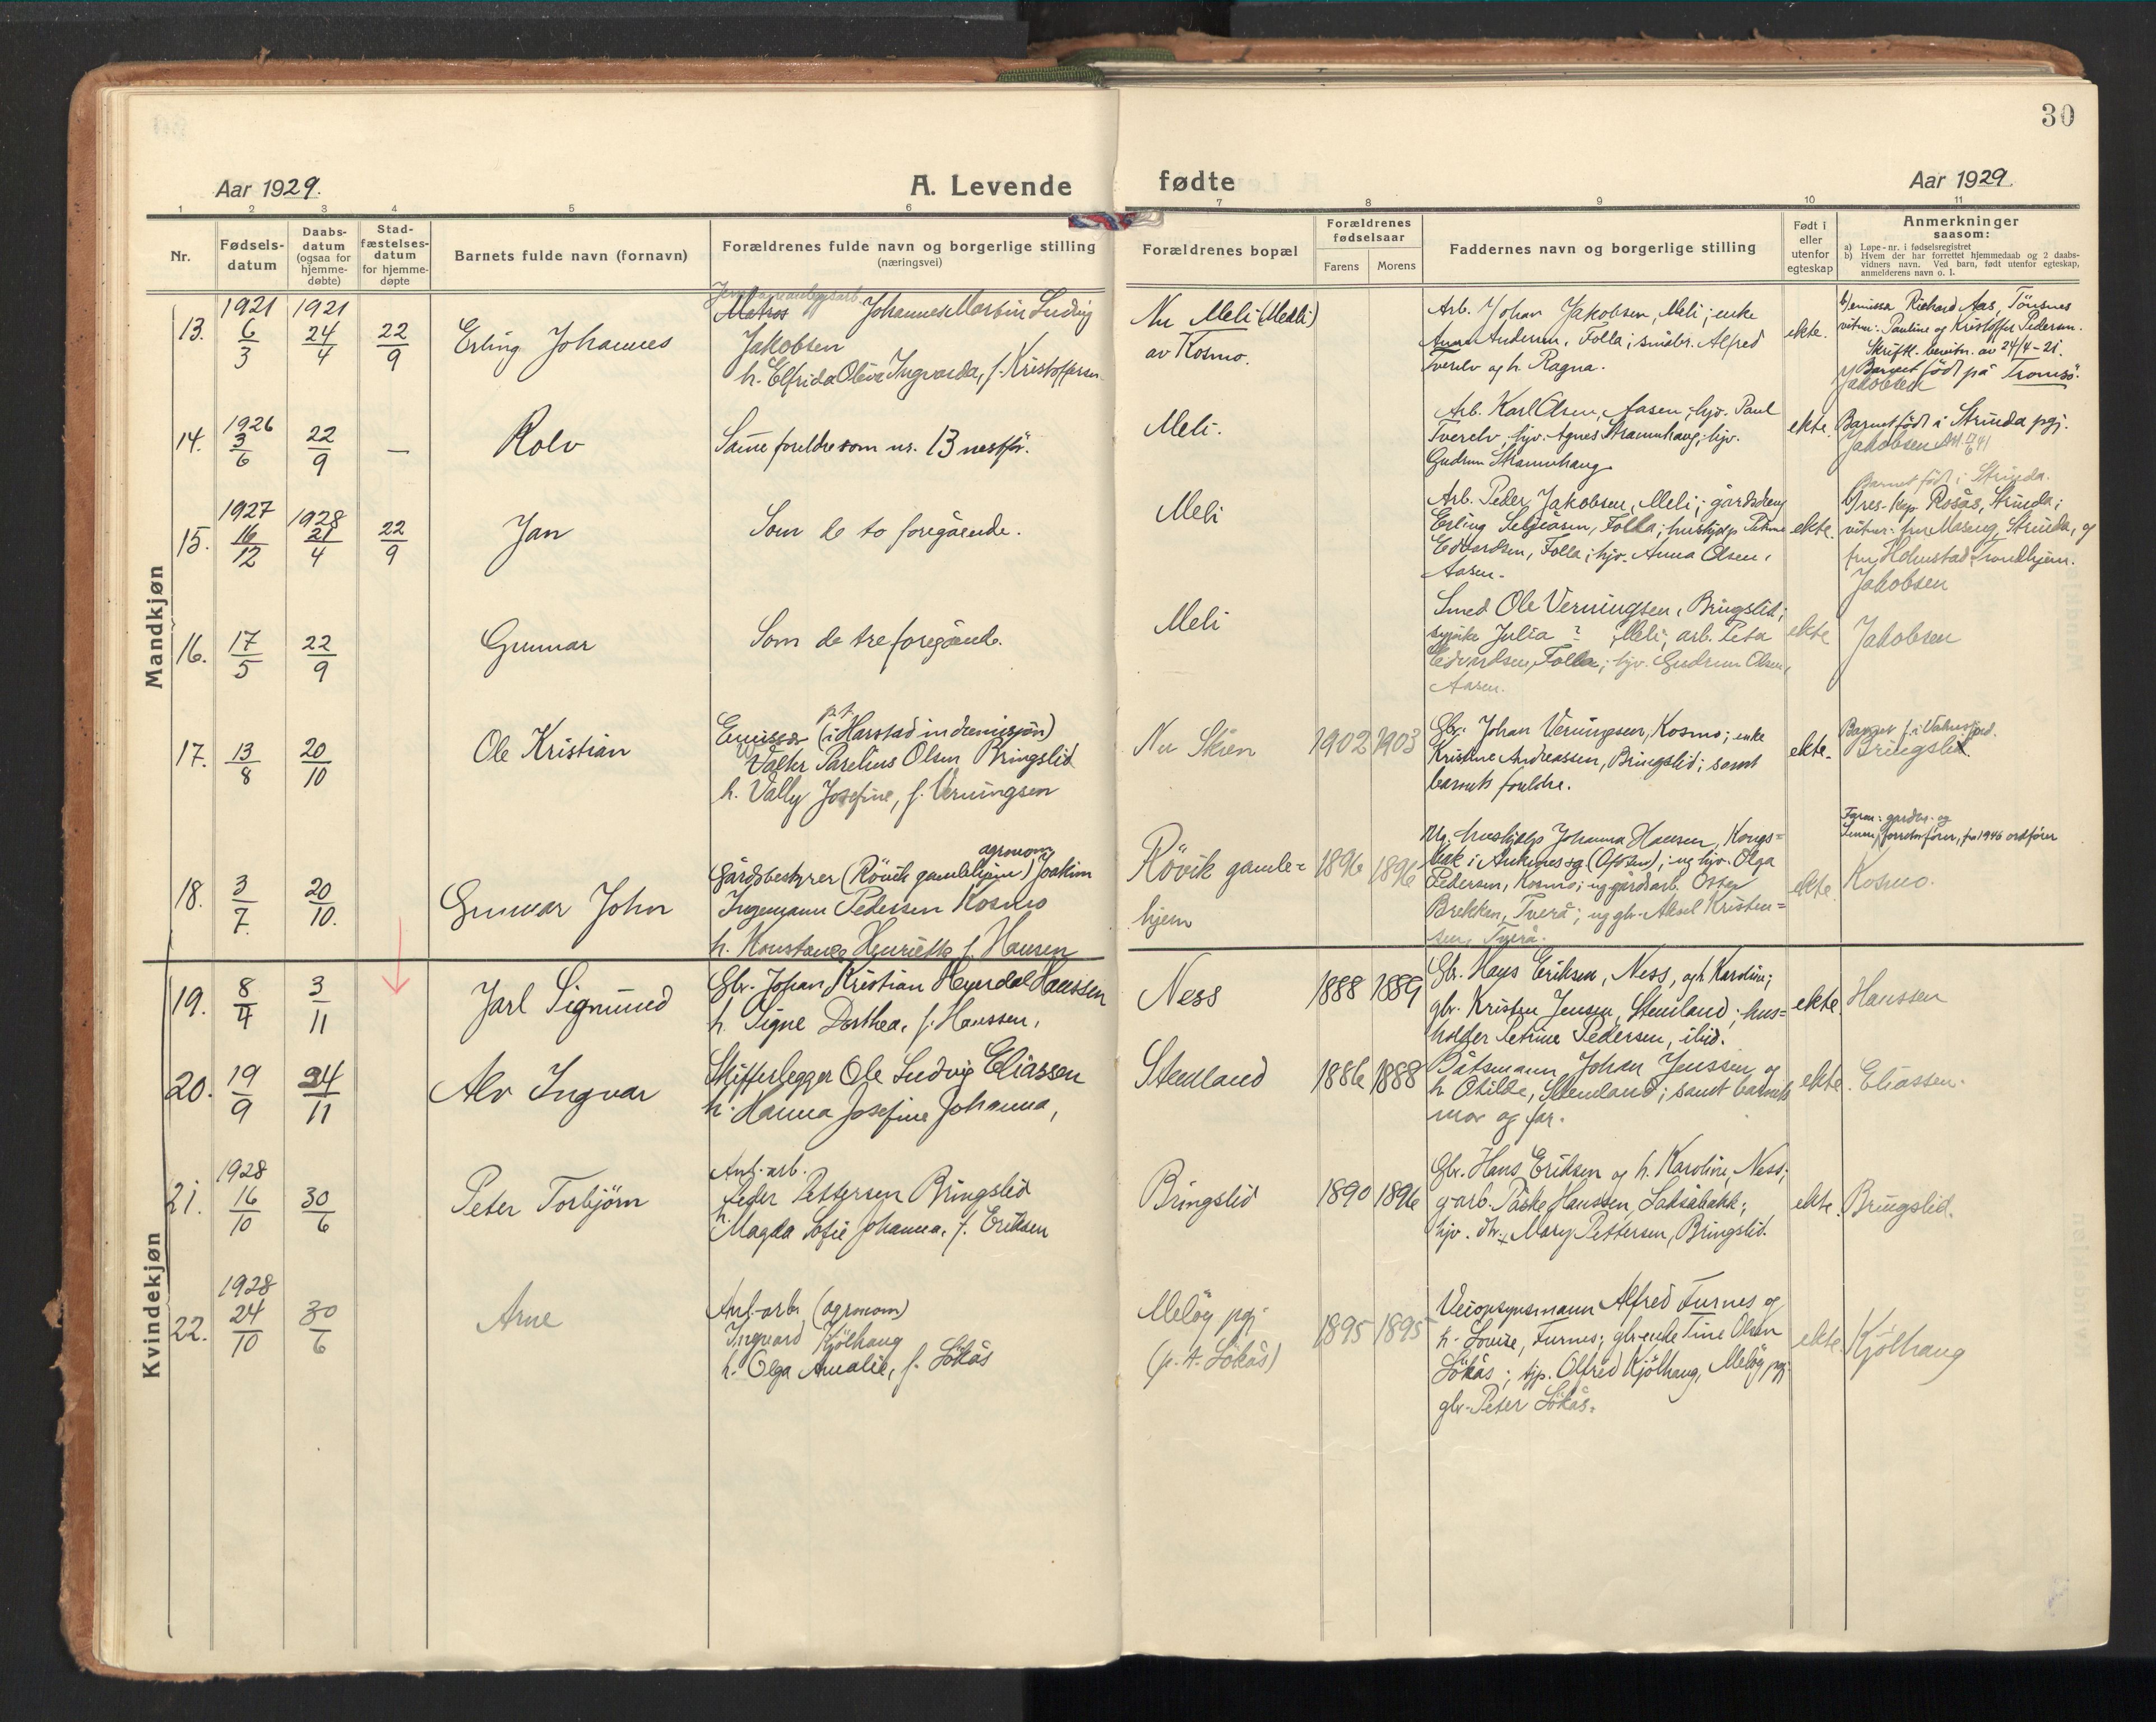 30
Aar 1929.
A. Levende
fødte
Aar 1929.
1 2 3 4 5 6 7 8 9 10 11
Nr.
Fødsels-
datum
Daabs-
datum
(ogsaa for
hjemme-
døbte)
Stad-
fæstelses-
datum
for hjemme-
døpte
Barnets fulde navn (fornavn)
Forældrenes fulde navn og borgerlige stilling
(næringsvei)
Forældrenes bopæl
Forældrenes
fødselsaar
Farens Morens
Faddernes navn og borgerlige stilling
Født i
eller
utenfor
egteskap
Anmerkninger
saasom:
a) Løpe-nr. i fødselsregistret
b) Hvem der har forrettet hjemmedaab og 2 daabs-
vidners navn. Ved barn, født utenfor egteskap,
anmelderens navn o. l.
Mandkjøn
13.
1921
6/3
1921
24/4
22/9
Erling Johannes
Matros Johannes Martin Ludvig
Jakobsen
h. Elfrida Oleva Ingvarda, f. Kristoffersen
Nu Meli (Medli)
av Kosmo.
Arb. Johan Jakobsen, Meli; enke
Anna Andersen, Folla; småbr. Alfred
Tverelv og h. Ragna.
ekte.
b/emissa Richard Aas, Tönsnes
vitner: Pauline og Kristoffer Pedersen.
Skriftl. bevitn. av 24/4-21.
Barnet född på Tromsö.
Jakobsen
14.
1926
3/6
22/9
—
Rolv
Samme foreldre som nr. 13 nestfør.
Meli.
Arb. Karl Olsen, Aasen; hjv. Paul
Tverelv, hjv. Agnes Straumhaug; hjv.
Gudrun Straumhaug
ekte.
Barnet född i Strinda pgj.
Jakobsen
15.
1927
16/12
1928
21/4
22/9
Jan
Som de to foregående.
Meli
Arb. Peder Jakobsen, Meli; gårdsdreng
Erling Seljeåsen, Folla; hushjelp Petrine
Edvardsen, Folla; hjv. Anna Olsen,
Aasen.
ekte.
Barnet född i Strinda.
b/res. kap. Rosås, Strinda;
vitner: fru Moseng, Strinda, og
fru Holmstad Trondhjem.
Jakobsen
16.
17/5
22/9
Gunnar
Som de tre foregående.
Meli
Smed Ole Verningsen, Bringslid;
sypike Julia ? Meli; arb. Peta
Edvardsen, Folla; hjv. Gudrun Olsen,
Aasen.
ekte
Jakobsen
17.
13/8
20/10
Ole Kristian
p.t.
Emissær (i Harstad indremisjon)
Valter Parelius Olsen Bringslid
h. Vally Josefine, f. Verningsen
Nu Skien
1902 1903
Gbr. Johan Verningsen, Kosmo; enke
Kristine Andreassen, Bringslid; samt
barnets foreldre.
ekte.
Bringslid.
18.
3/7.
20/10.
Gunnar John
agronom
Gårdsbestyrer (Rövik gamlehjem) Joakim
Ingemann Pedersen Kosmo
h. Konstanse Henriette f. Hansen
Rövik gamle=
hjem
1896 1896
Ug. hushjelp Johanna Hansen, Kongs=
bak i Ankenes sg. (Ofoten); ug. hjv. Olga
Pedersen, Kosmo; ug gårdsarb. Osten
Brekken, Tverå; ug gbr. Aksel Kristen=
sen, Tverå.
ekte.
Faren: gårdbr. og
forretnförer, fra 1946 ordförer
Kosmo.
19.
8/4
3/11
Jarl Sigmund
Gbr. Johan Kristian Heyerdal Hanssen
h. Signe Dorthea, f. Hanssen,
Ness
1888 1889
Gbr. Hans Eriksen, Ness, og h. Karoline;
gbr. Kristen Jensen, Stemland; hus=
holder Petrine Pedersen, ibid.
ekte.
Hanssen
Kvindekjøn
20.
19/9
24/11
Alv Ingvar
Skifferlegger Ole Ludvig Eliassen
h. Hanna Josefine Johanna,
Stemland
1886 1888
Båtsmann Johan Jenssen og
h. Otilde, Stemland; samt barnets
mor og far.
ekte.
Eliassen.
21.
1928
16/10
30/6
Peter Torbjörn
Anl. arb.
Peder Pettersen Bringslid
h. Magda Sofie Johanna, f. Eriksen
Bringslid
1890 1896
Gbr. Hans Eriksen og h. Karoline, Ness;
g.arb. Påske Hanssen, Laksåbakk;
hjv. dtr. Mary Pettersen, Bringslid.
ekte.
Bringslid.
22.
1928
24/10
30/6
Arne
Anl.-arb. (agronom)
Ingvard Kjölhaug
h. Olga Amalie, f. Lökås
Melöy pgj.
(p.t. Lökås)
1895 1895
Veiopsynsmann Alfred Furnes og
h. Lovise, Furnes; gbr.enke Tine Olsen
Lökås; tjp. Olfred Kjölhaug, Melöy pgj.
gbr. Peter Lökås.
ekte.
Kjölhaug